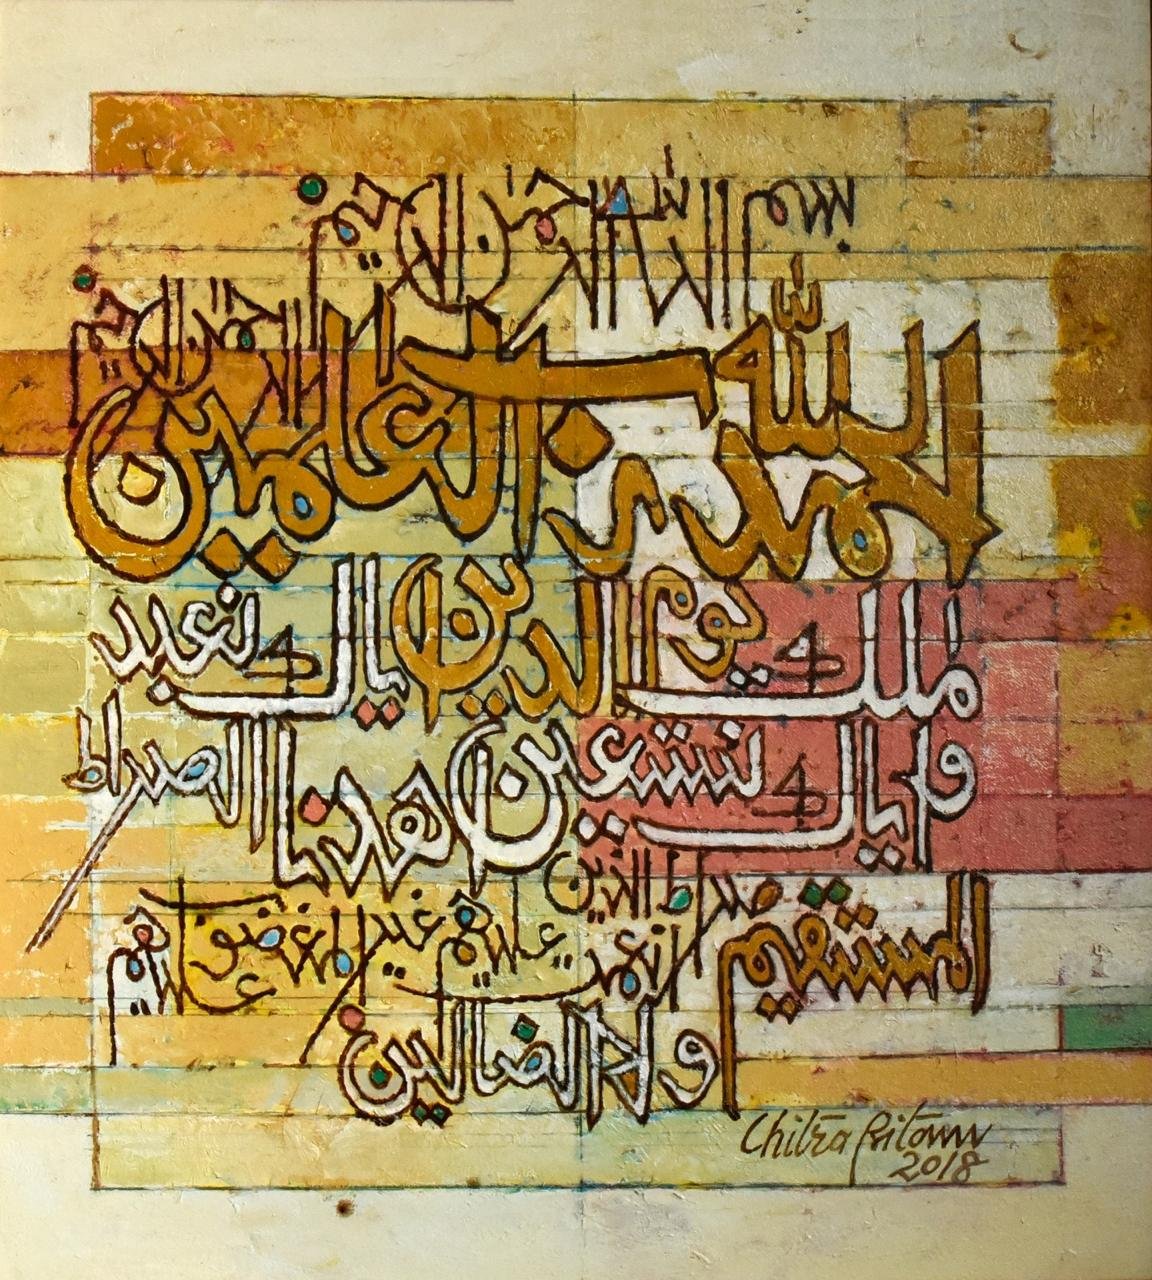 بسم الله الرحمن الرحيم
الحمد لله رب العلمين
الرحمن الرحيم
ملك يوم الدين اياك نعبد
و اياك نستعين اهدنا الصراط
المستقيم صراط الذين
انعمت عليهم غير المغضوب عليهم
ولا الضالين
Chitra Ritam
2018